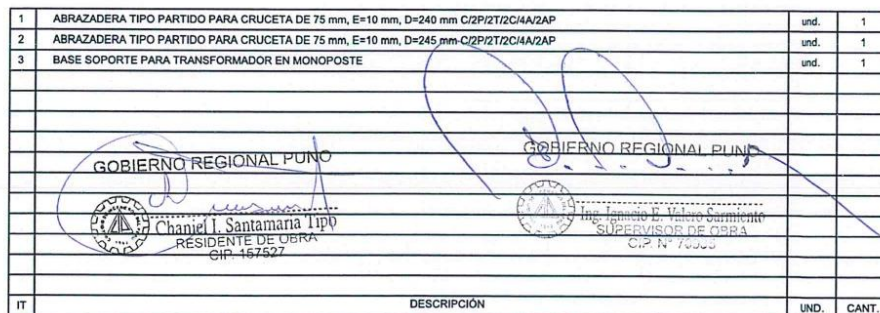 1 ABRAZADERA TIPO PARTIDO PARA CRUCETA DE 75 mm, E=10 mm, D=240 mm C/2P/2T/2C/4A/2AP und. 1
2 ABRAZADERA TIPO PARTIDO PARA CRUCETA DE 75 mm, E=10 mm, D=245 mm C/2P/2T/2C/4A/2AP und. 1
3 BASE SOPORTE PARA TRANSFORMADOR EN MONOPOSTE und. 1
GOBIERNO REGIONAL PUNO
Chaniel I. Santamaria Tipo
RESIDENTE DE OBRA
CIP. 157527
GOBIERNO REGIONAL PUNO
Ing. Ignacio E. Valero Sarmiento
SUPERVISOR DE OBRA
CIP. N°
IT DESCRIPCIÓN UND. CANT.